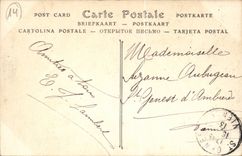 14
POST CARD Carte Postale POSTKARTE
BRIEFKAART POSTKAART
CARTOLINA POSTALE ОТКРЫТОЕ ПИСЬМО TARJETA POSTAL
Mademoiselle
Suzanne Aubugeau
St Genest d'Ambière
Vienne
Amitiés à tous
E.